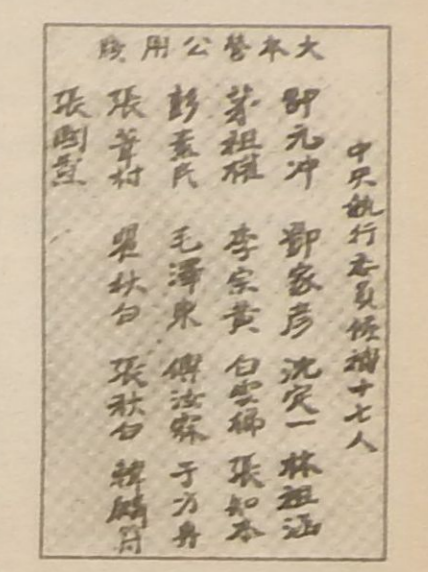 大本營公用牋
中央執行委員候補十七人
邵元冲 鄧家彥 沈定一 林祖涵
茅祖權 李宗黃 白雲梯 張知本
彭素民 毛澤東 傅汝霖 于方舟
張葦村 瞿秋白 張秋白 韓麟符
張國燾